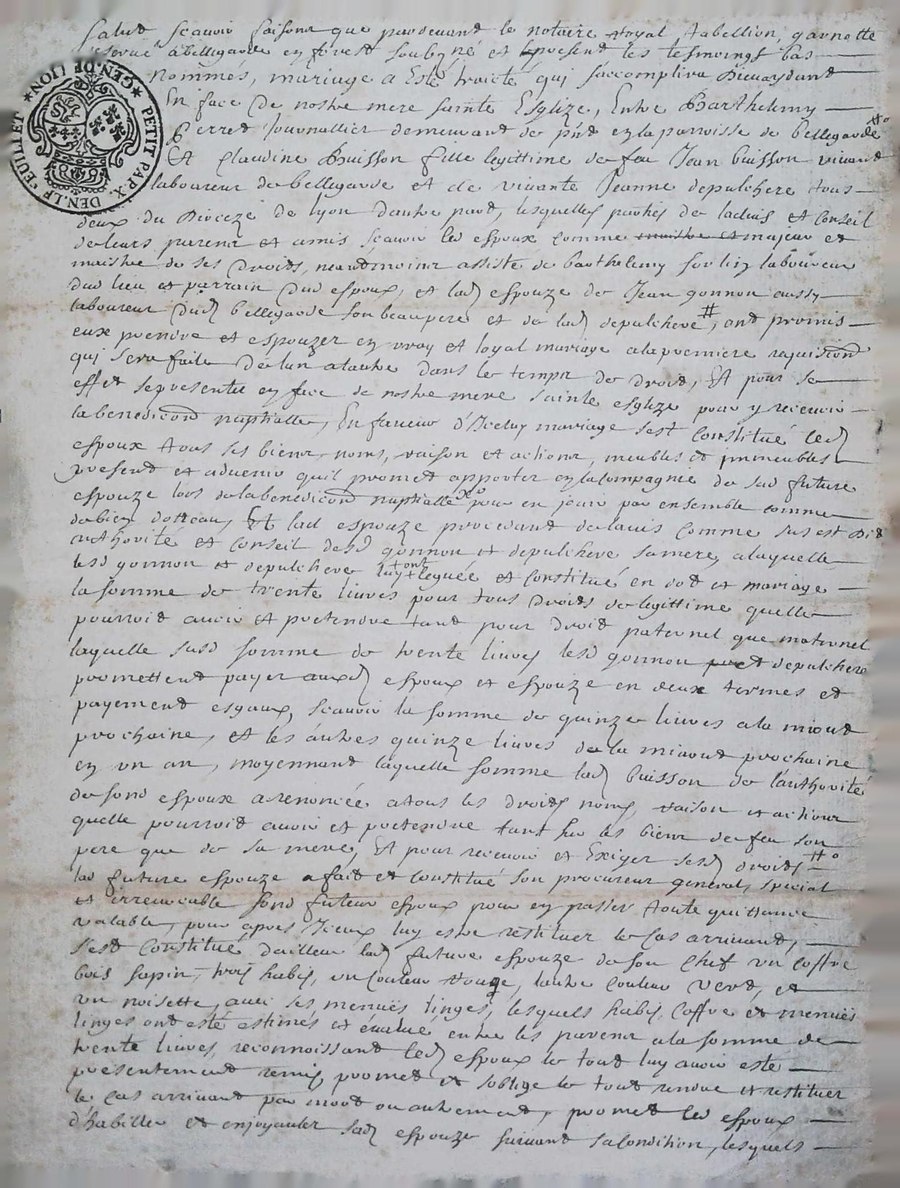 Salut scavoir faisons que pardevant le notaire royal tabellion, garnotte
reservé a bellegarde en forest soubsné et present les tesmoings bas
nommes, mariage a esté traicté qui s'accomplira Dieu aydant
En face de nostre mere sainte Esglize, Entre Barthelemy
Perret Journallier demeurant de pñt en la parroisse de bellegarde
Et Claudine Buisson fille legittime de feu Jean buisson vivant
laboureur de bellegarde et de vivante Jeanne depulchere tous
deux du Dioceze de Lyon d'autre part, lesquelles parties de ladvis et Conseil
de leurs parens et amis scavoir led espoux comme maistre et majeur et
maistre de ses droits, neantmoins assisté de barthelemy laboureur
dud lieu et parrain dud espoux, et lad espouze de Jean gonnon aussy
laboureur dud bellegarde son beaupere et de lad depulchere #, ont promis
eux prendre et espouzer en vray et loyal mariage a la premiere requisition
qui sera faite de l'un a l'autre dans le temps de droit, Et pour se
effet se presenter en face de nostre mere sainte esglize pour y recevoir
la benediction nuptialle, En faveur d'Iceluy mariage s'est Constitué led
espoux tous ses biens, noms, raison et actions, meubles et immeubles
present et advenir qu'il promet apporter en la compagnie de sad future
espouze lors de la benediction nuptialle pour en jouir par ensemble comme
de bien dottaux, Et lad espouze procedant de l'avis comme sus est Dit
authorité et Conseil desd gonnon et depulchere sa mere, a laquelle
lesd gonnon et depulchere luy ont leguée et constitué en dot et mariage
la somme de trente livres pour tous droits de legittime quelle
pourroit avoir et pretendre tant pour droit paternel que maternel
laquelle susd somme de trente livres lesd gonnon et depulchere
promettent payer auxd espoux et espouze en deux termes et
payement esgaux, scavoir la somme de quinze livres a la miaout
prochaine, et les autres quinze livres de la miaout prochaine
en un an, moyennant laquelle somme lad buisson de l'authorité
de sond espoux a renoncée a tous les droits, noms, raison et actions
quelle pourroit avoir et pretendre tant sur les biens de feu son
pere que de sa mere, Et pour recevoir et Exiger sesd droits #
lad future espouze a fait et constitué son procureur general, special
et irrevocable sond futeur espoux pour en passer toute quittance
valable, pour apres Iceux luy estre restituer le Cas arrivant,
s'est Constitué d'ailleur lad future espouze de son Chef un Coffre
bois sapin, trois habis, un couleur rouge, l'autre couleur vert, et
un noisette, avec ses menuës linges, lesquels habis, Coffre et menuës
linges ont esté estimés et évalué entre les parens a la somme de
trente livres, reconnoissant led espoux le tout luy avoir esté
presentement remis, promet et s'oblige le tout rendre et restituer
le Cas arrivant par mort ou autrement, promet led espoux
d'habiller et enjoyauler sad espouze suivant sa condition, lesquels
PETIT PAP. X. DEN. LE FEUILLET * GEN. DE LION *